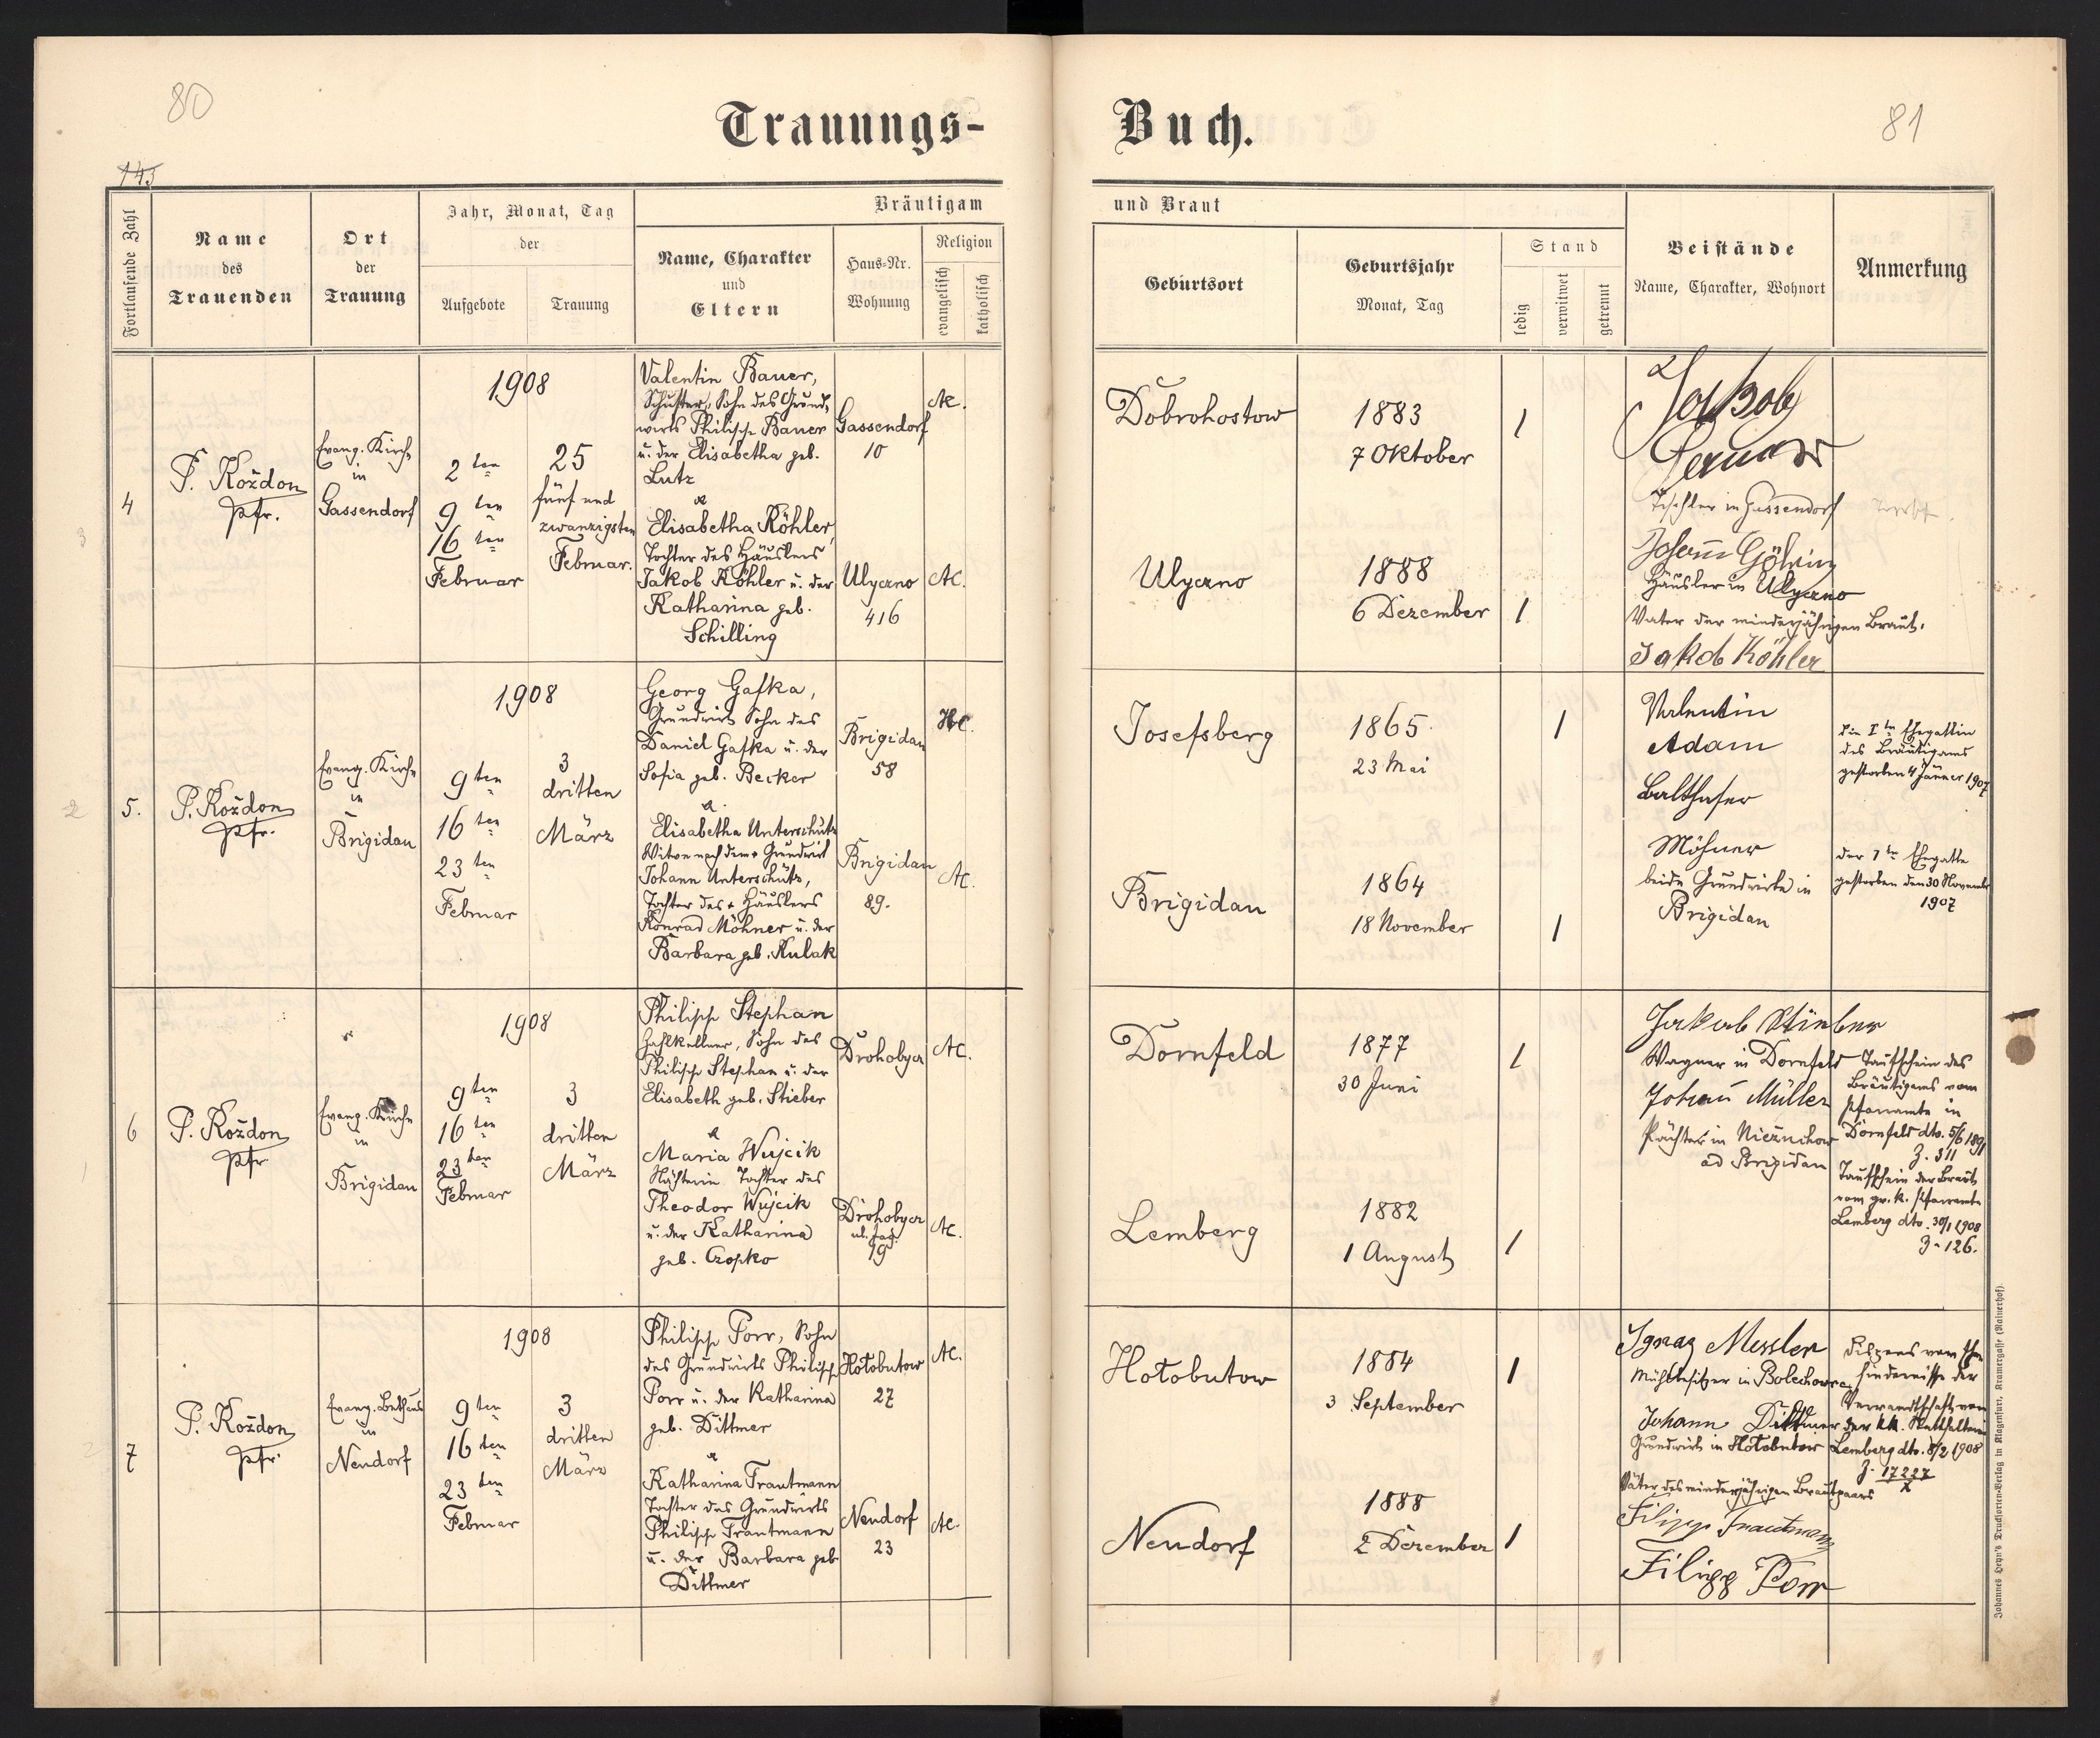 80
Trauungs-
145
Fortlaufende Zahl
Name
des
Trauenden
Ort
der
Trauung
Jahr, Monat, Tag
der
Aufgebote
Trauung
Bräutigam
Name, Charakter
und
Eltern
Haus-Nr.
Wohnung
Religion
evangelisch
katholisch
4
P. Kożdon
Pfr.
Evang. Kirche
in
Gassendorf
1908
2 ten
9 ten
16 ten
Februar
25
fünf und
zwanzigsten
Februar.
Valentin Bauer,
Schuster, Sohn des Grund-
wirts Philipp Bauer
u. der Elisabetha geb.
Lutz
&
Elisabetha Köhler,
Tochter des Häuslers
Jakob Köhler u. der
Katharina geb.
Schilling
Gassendorf
10
AC.
Ulyczno
416
AC.
5.
P. Kożdon
Pfr.
Evang. Kirche
in
Brigidau
1908
9 ten
16 ten
23 ten
Februar
3
dritten
März
Georg Gafka,
Grundwirt Sohn des
Daniel Gafka u. der
Sofia geb. Becker
&
Elisabetha Unterschütz
Witwe nach dem + Grundwirt
Johann Unterschütz,
Tochter des + Häuslers
Konrad Möhner u. der
Barbara geb. Kulak
Brigidau
58
HC.
Brigidau
89.
AC.
6
P. Kożdon
Pfr
Evang. Kirche
in
Brigidau
1908
9 ten
16 ten
23 ten
Februar
3
dritten
März
Philipp Stephan
Zahlkellner, Sohn des
Philipp Stephan u. der
Elisabeth geb. Stieber
&
Maria Wujcik
Nähterin Tochter des
Theodor Wujcik
u. der Katharina
geb. Czopko
Drohobycz
AC.
Drohobycz
19
AC.
7
P. Kożdon
Pfr.
Evang. Bethaus
in
Neudorf
1908
9 ten
16 ten
23 ten
Februar
3
dritten
März
Philipp Porr, Sohn
des Grundwirts Philipp
Porr u. der Katharina
geb. Dittmer
&
Katharina Trautmann
Tochter des Grundwirts
Philipp Trautmann
u. der Barbara geb
Dittmer
Hołobutow
27
AC.
Neudorf
23
AC.
81
Buch.
und Braut
Geburtsort
Geburtsjahr
Monat, Tag
Stand
ledig
verwitwet
getrennt
Beistände
Name, Charakter, Wohnort
Anmerkung
Dobrohostow
1883
7 Oktober
1
Jakob
Tischler in Gassendorf
Ulyczno
1888
6 Dezember
1
Johann Göhring
Häusler in Ulyczno
Vater der minderjährigen Braut.
Jakob Köhler
Josefsberg
1865.
23 Mai
1
Valentin
Adam
Balthaser
Möhner
beide Grundwirte in
Brigidau
Die I te Ehegattin
des Bräutigams
gestorben 4 Jänner 1907
Brigidau
1864
18 November
1
der 1 te Ehegatte
gestorben den 30 November
1907
Dornfeld
1877
30 Juni
1
Jakob Stieber
Wagner in Dornfeld
Johann Müller
Pächter in Nieżuchow
ad Brigidau
Taufschein des
Bräutigams vom
Pfarramte in
Dornfeld dto. 5/6 1891
Z. 311
Taufschein der Braut
vom gr. k. Pfarramte
Lemberg dto. 30/1 1908
Z. 126.
Lemberg
1882
1 August
1
Hołobutow
1884
3 September
1
Ignaz Messler
Mühlbesitzer in Bolechow
Johann Dittmer
Grundwirt in Hołobutow
Väter des minderjährigen Brautpaars
Filipp Trautmann
Filipp Porr
Dispens vom Ehe-
hindernisse der
Verwandtschaft von
der kk. Statthalterei
Lemberg dto. 8/2 1908
Z. 17227
X
Neudorf
1888
2 Dezember
1
Johannes Heyn's Drucksorten-Verlag in Klagenfurt, Kramergasse (Rainerhof)